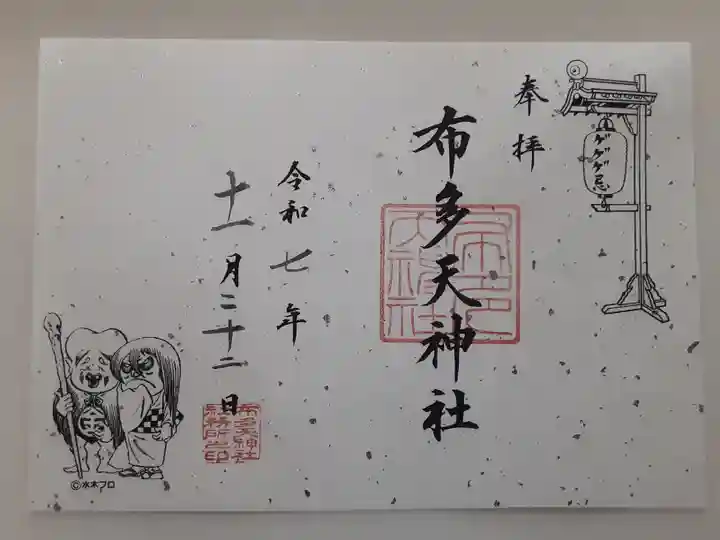 ゲゲゲ忌
奉拝
布多天神社
令和七年
十一月二十二日
布多天神社
社務所之印
金
©水木プロ